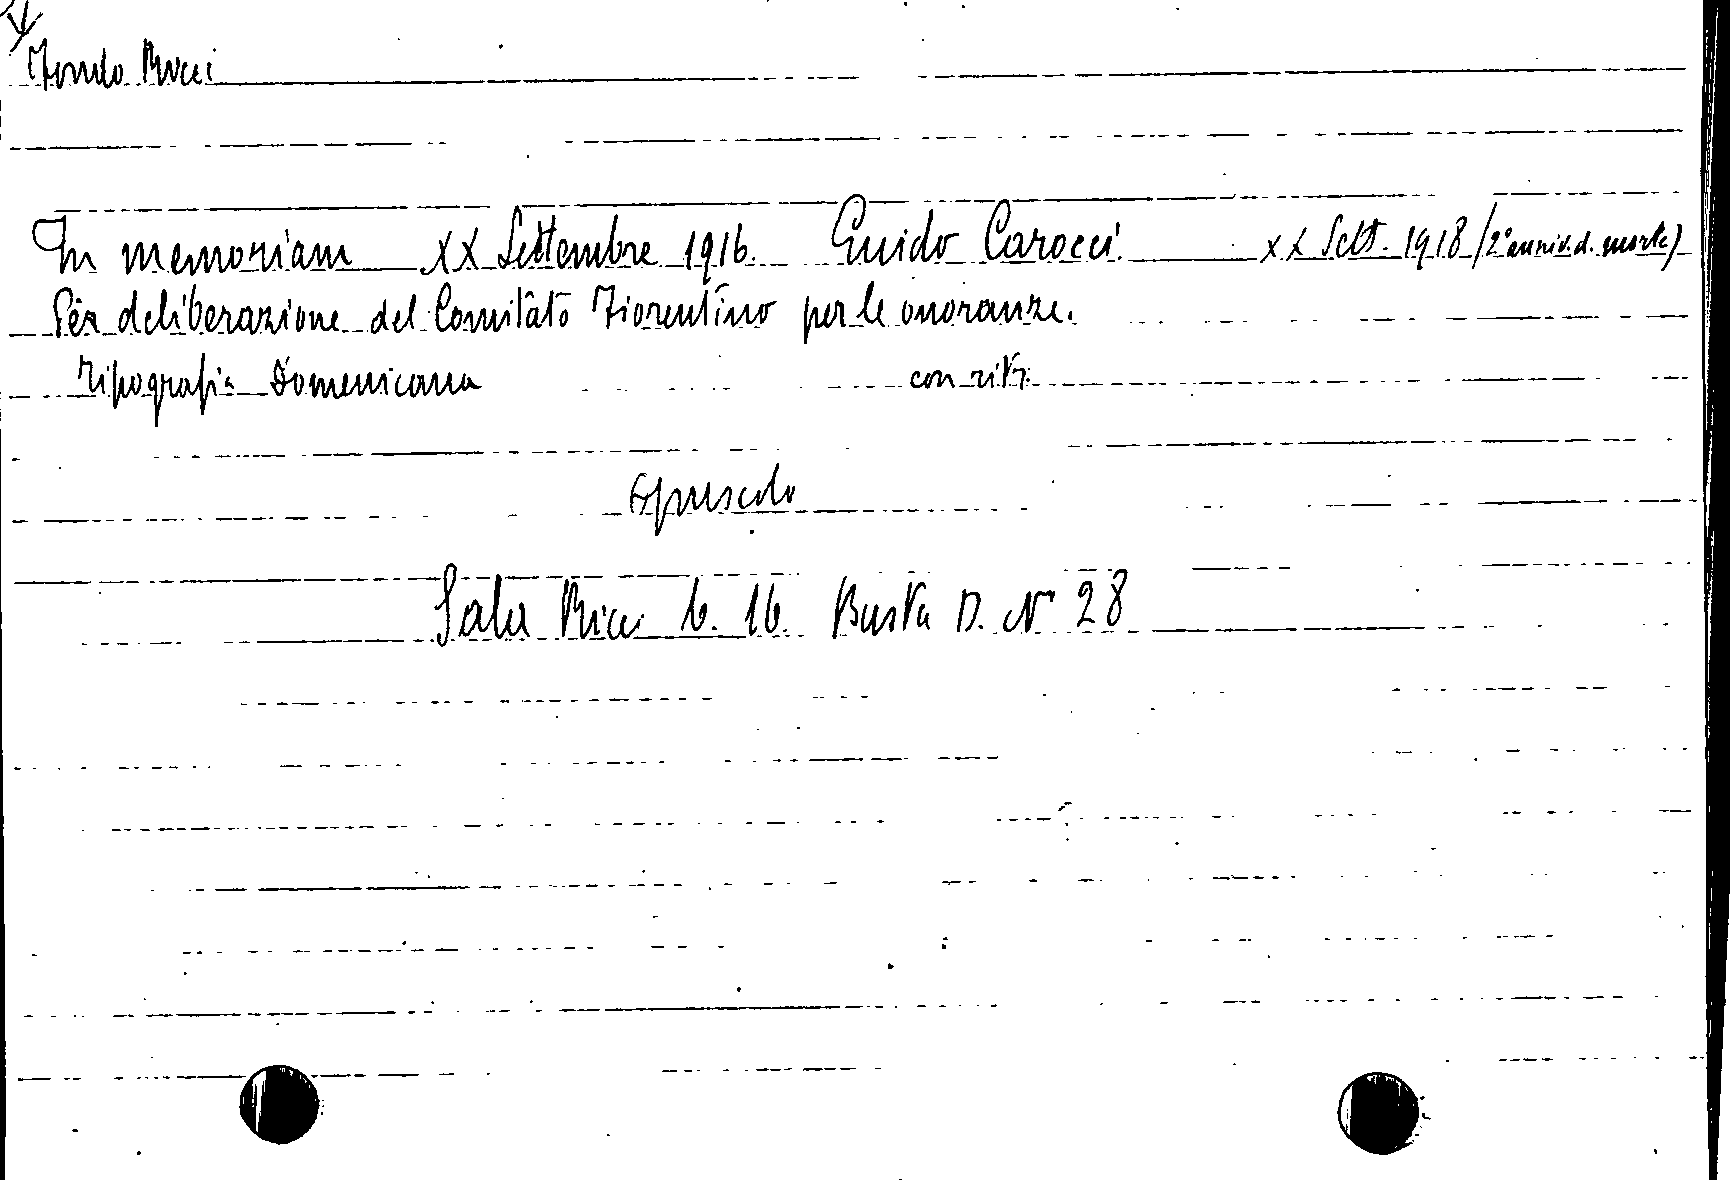 Fondo Ricci
In memoriam XX Settembre 1916. Guido Carocci. XX Sett. 1918 (2° anniv. d. morte)
Per deliberazione del Comitato Fiorentino per le onoranze.
Tipografia Domenicana con ritr.
Opuscolo
Sala Ricci 6. 16. Busta D. N° 28